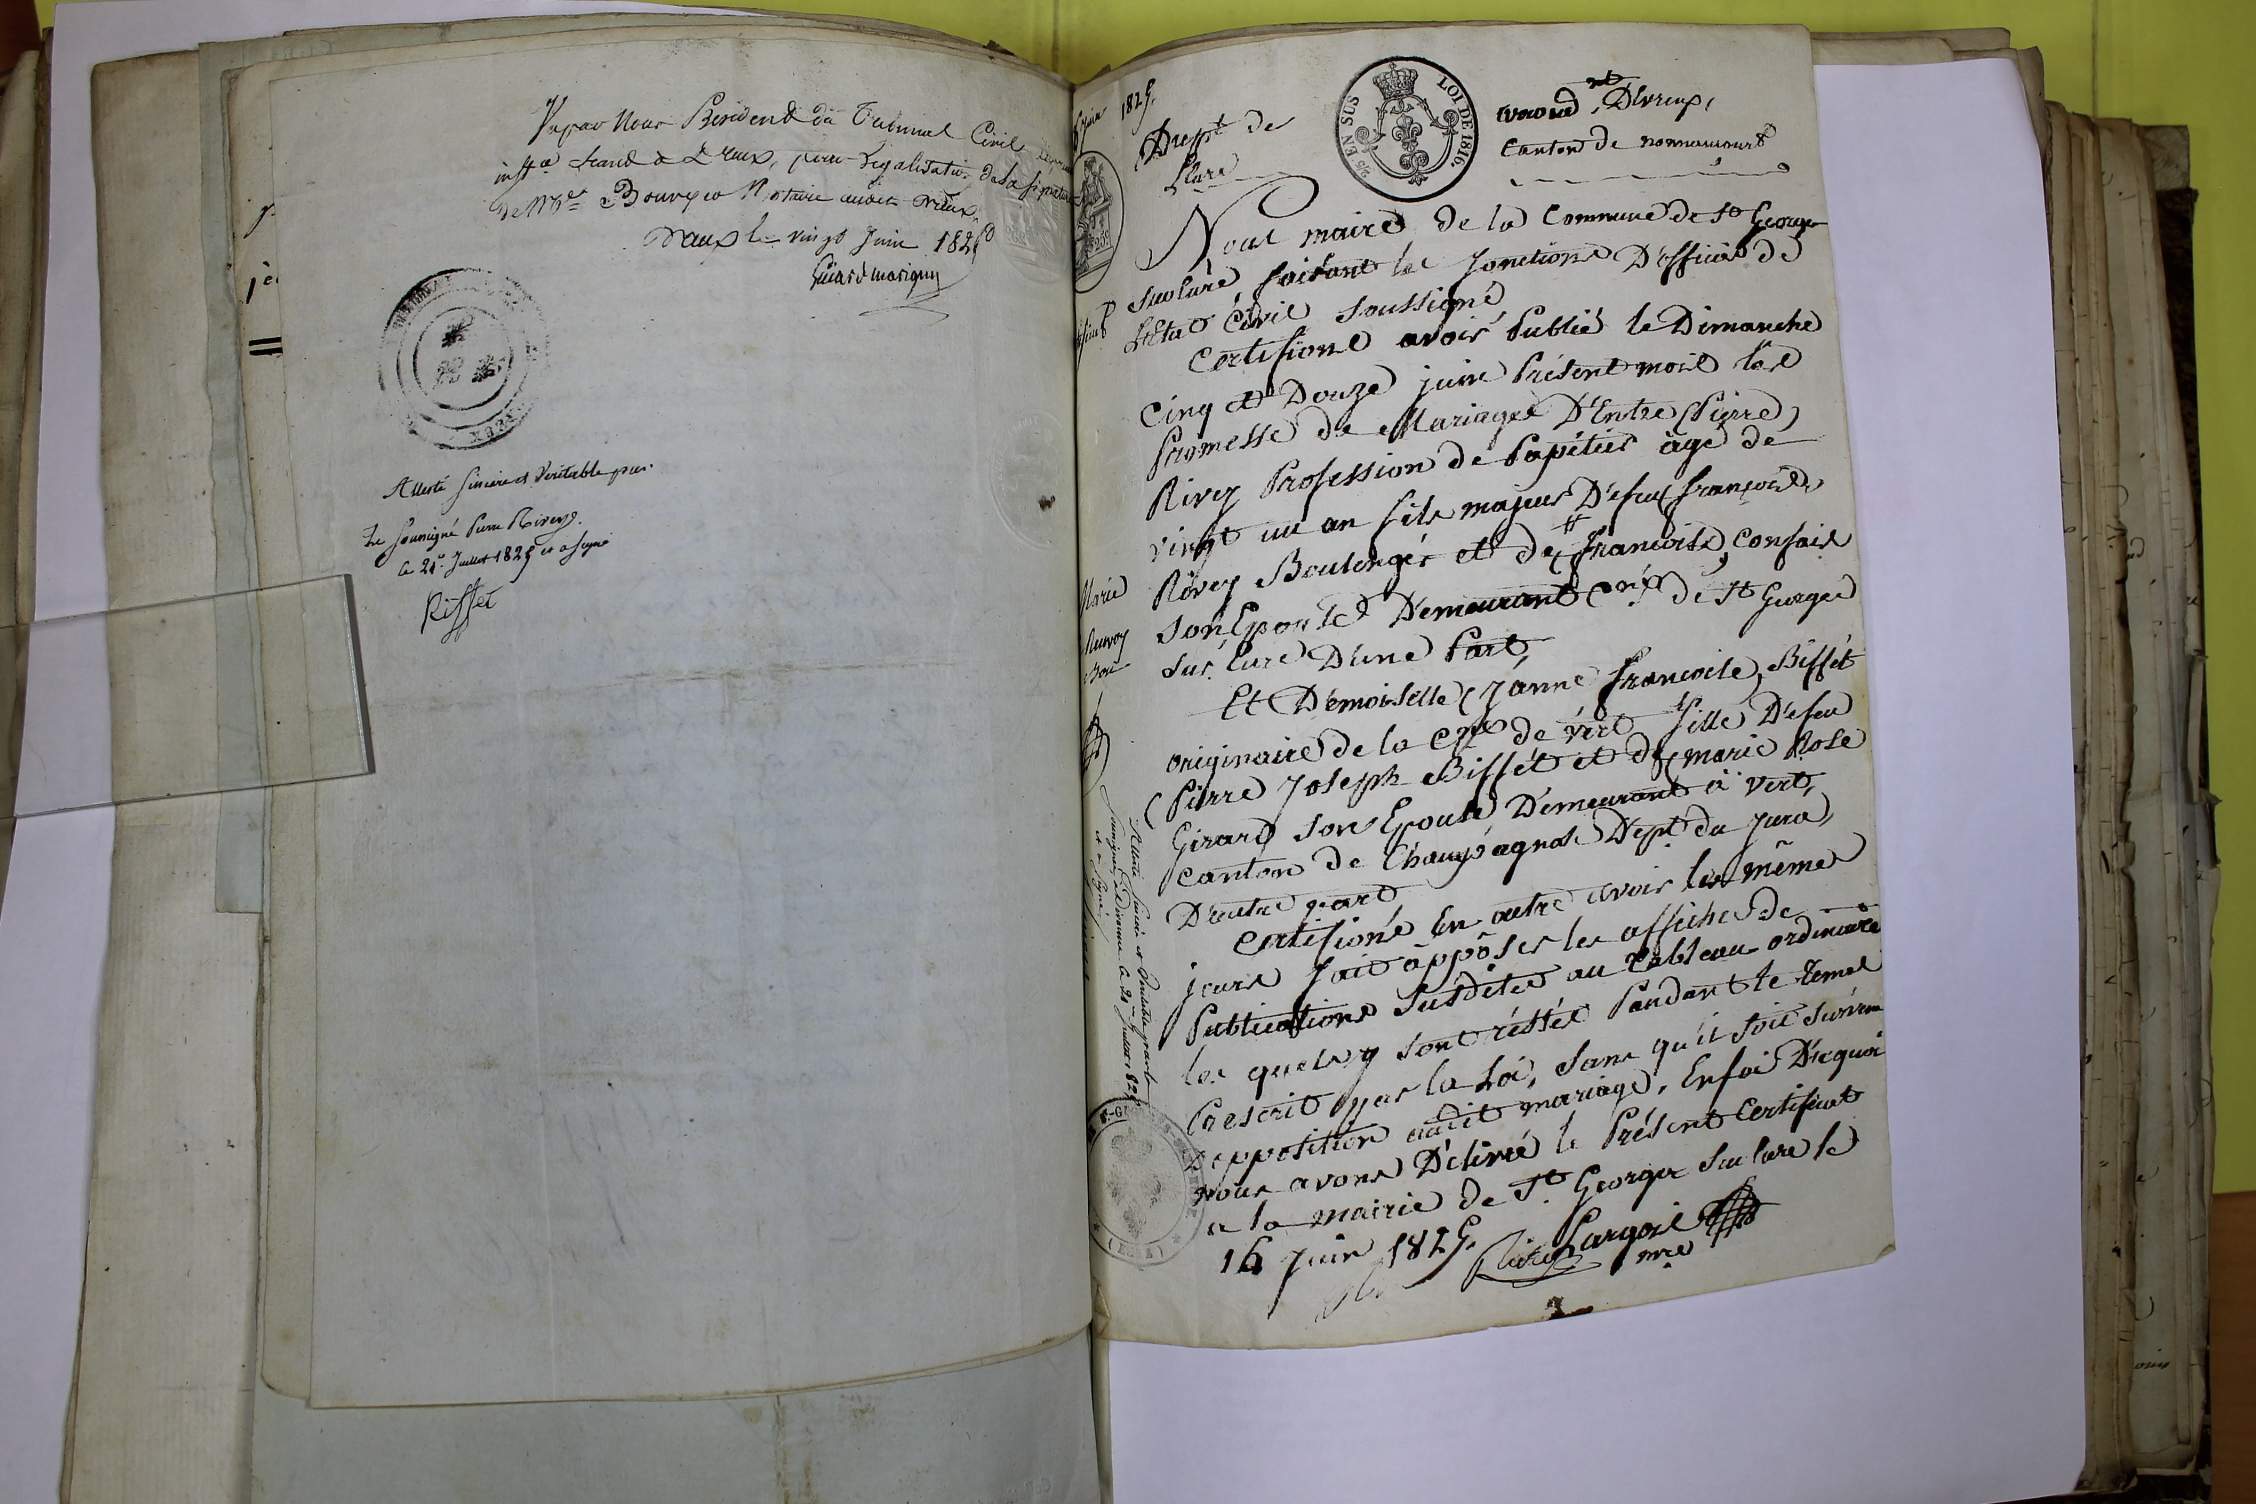 Vu par Nous Président du Tribunal Civil
inst.ce séant à Dreux, pour légalisation de la signature
de M.e Bourgeo Notaire audit Dreux,
Dreux le vingt Juin 1825
Guiard Marigny
Attesté Sincère et Véritable par
Le Soussigné Pierre Rivey
Ce 21 Juillet 1825 et a signé
Riffet
Juin 1825.
Dréppt de
L'Eure
25 EN SUS
LOI DE 1816.
arrond.nt D'Evreux,
Canton de nonnancourt
Nous maire de la Commune de St George
Sur lure, faisant les fonctions D'officier de
L'Etat Civil Soussigné
Certifions avoir Publié le Dimanche
Cinq et Douze juin Présent mois les
Promesse de Mariages D'Entre (Pierre)
Rivey Profession de Papétier âgé de
vingt un an fils majeur D'efeu françois
Rivey Boulenger et de # françoise, Confais
Son Epouse Demeurant C.ne de St George
Sur lure D'une Part,
Et Démoiselle (Janne françoise, Biffét
originaire de la C.ne de vért fille D'efeu
(Pierre Joseph Biffét et de marie Rose
Girard son Epouse Demeurant à Vert,
Canton de Champagnol Dépt du Jura,
D'autre part
Certifioné En outre avoir les mêmes
jours fait appôser les affiches de
Publications Susdites au Tableau ordinaire
les quels y sont résstés Pandant le tems
Prescrit par la Loi, Sans qu'il soit survenu
opposition audit mariage. Enfoi D'equoi
nous avons Délivré le Présent Certificat
a la mairie de St Georges Sur lure le
16 Juin 1825.
Pargoil
mre
Rivey
Marie
Attesté Sincère et Véritable par le
Soussigné à Divonne le 21 Juillet 1825
et a Signé
(EURE)